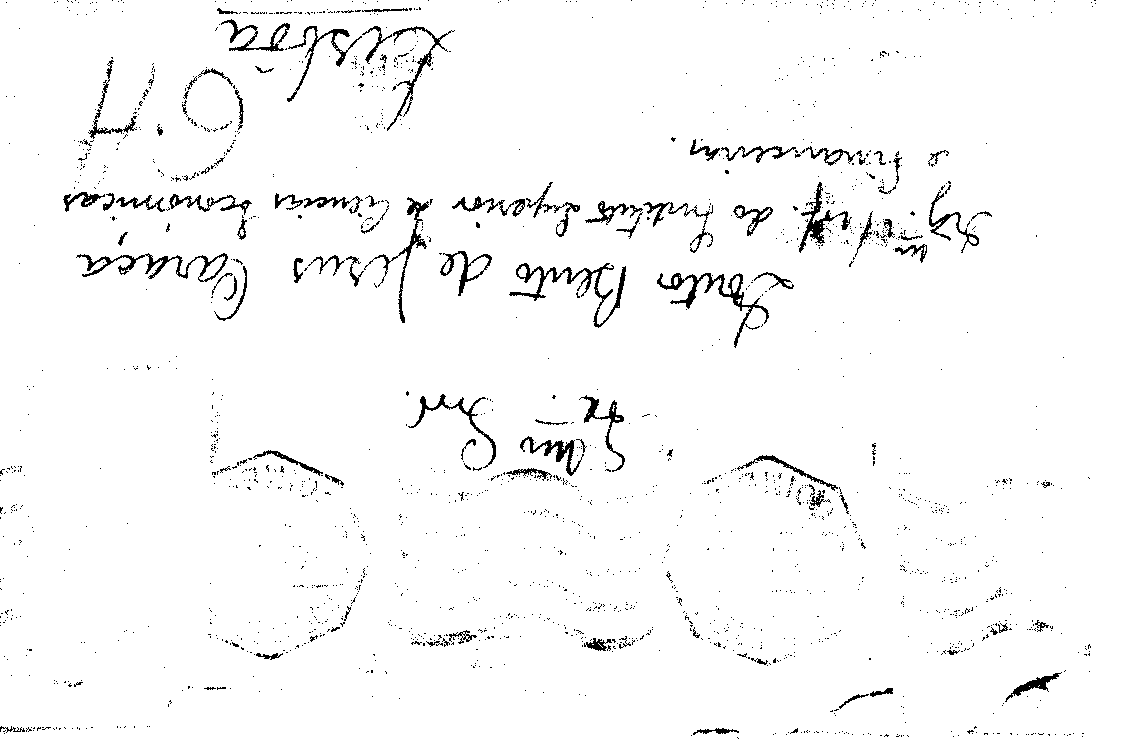 Exmo Snr.
Doutor Bento de Jesus Caraça
Digmo Prof. do Instituto Superior de Ciencias Económicas
e Financeiras.
Lisbôa